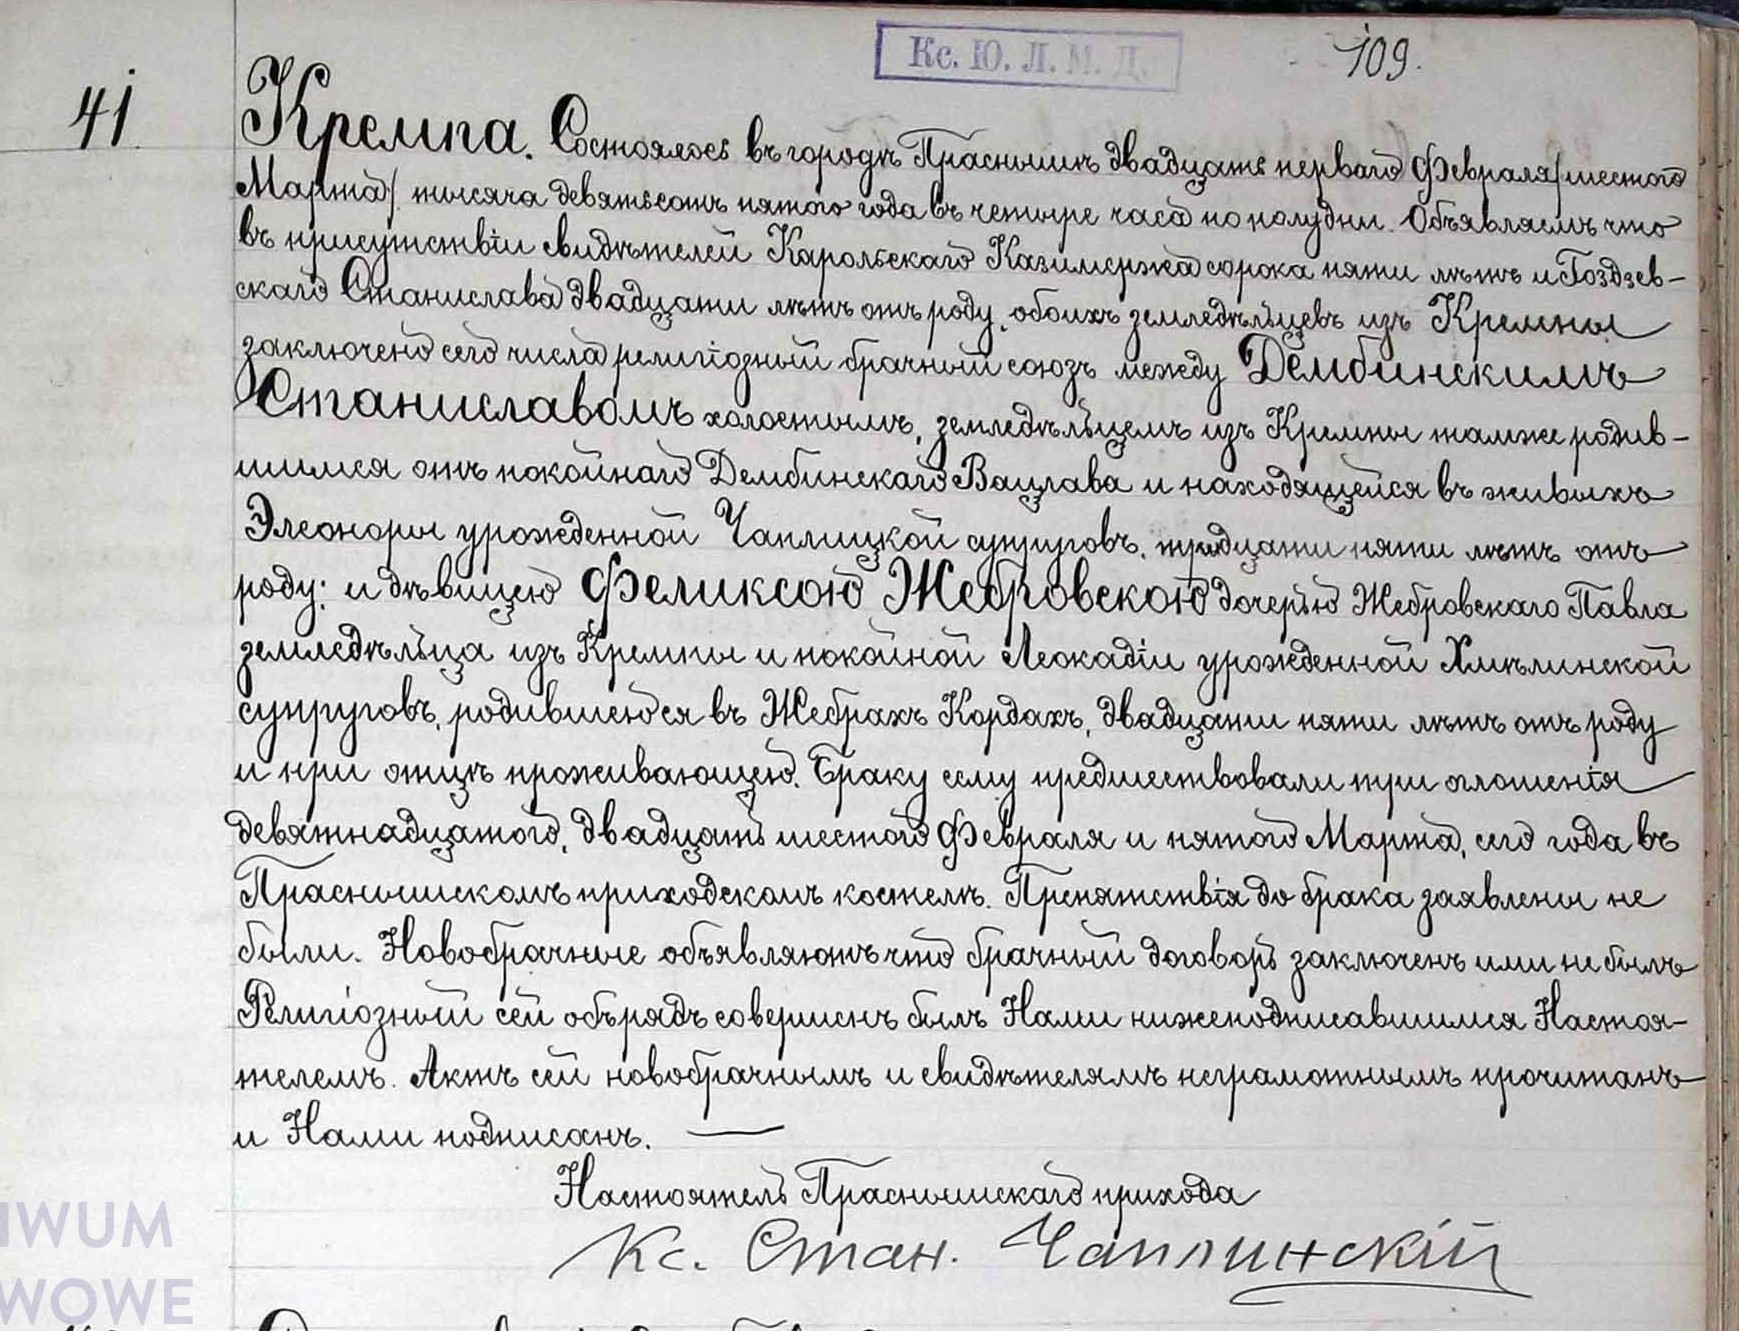 Кс. Ю. Л. М. Д.
109.
41.
Кремпа. Состоялось въ городѣ Праснышѣ двадцать перваго Февраля /шестого
Марта/ тысяча девятьсотъ пятого года въ четыре часа по полудни. Объявляемъ что
въ присутствіи свидѣтелей Карольскаго Казимержа сорока пяти лѣтъ и Гоздзев-
скаго Станислава двадцати лѣтъ отъ роду, обоихъ земледѣльцевъ изъ Кремпы
заключено сего числа религіозный брачный союзъ между Дембинскимъ
Станиславомъ холостымъ, земледѣльцемъ изъ Кремпы тамже родив-
шимся отъ покойнаго Дембинскаго Вацлава и находящейся въ живыхъ
Элеоноры урожденной Чаплицкой супруговъ, тридцати пяти лѣтъ отъ
роду; и дѣвицею Феликсою Жебровскою дочерью Жебровскаго Павла
земледѣльца изъ Кремпы и покойной Леокадіи урожденной Хмѣлинской
супруговъ, родившеюся въ Жебрахъ Кордахъ, двадцати пяти лѣтъ отъ роду
и при отцѣ проживающею. Браку сему предшествовали три оглошенія
девятнадцатого, двадцать шестого Февраля и пятого Марта, сего года въ
Праснышскомъ приходскомъ костелѣ. Препятствія до брака заявлены не
были. Новобрачные объявляютъ что брачный договоръ заключенъ ими не былъ
Религіозный сей обърядъ совершенъ былъ Нами нижеподписавшимся Настоя-
телемъ. Актъ сей новобрачнымъ и свидѣтелямъ неграмотнымъ прочитанъ
и Нами подписанъ. —
Настоятель Праснышскаго прихода
Кс. Стан. Чаплинскій
IWUM
WOWE